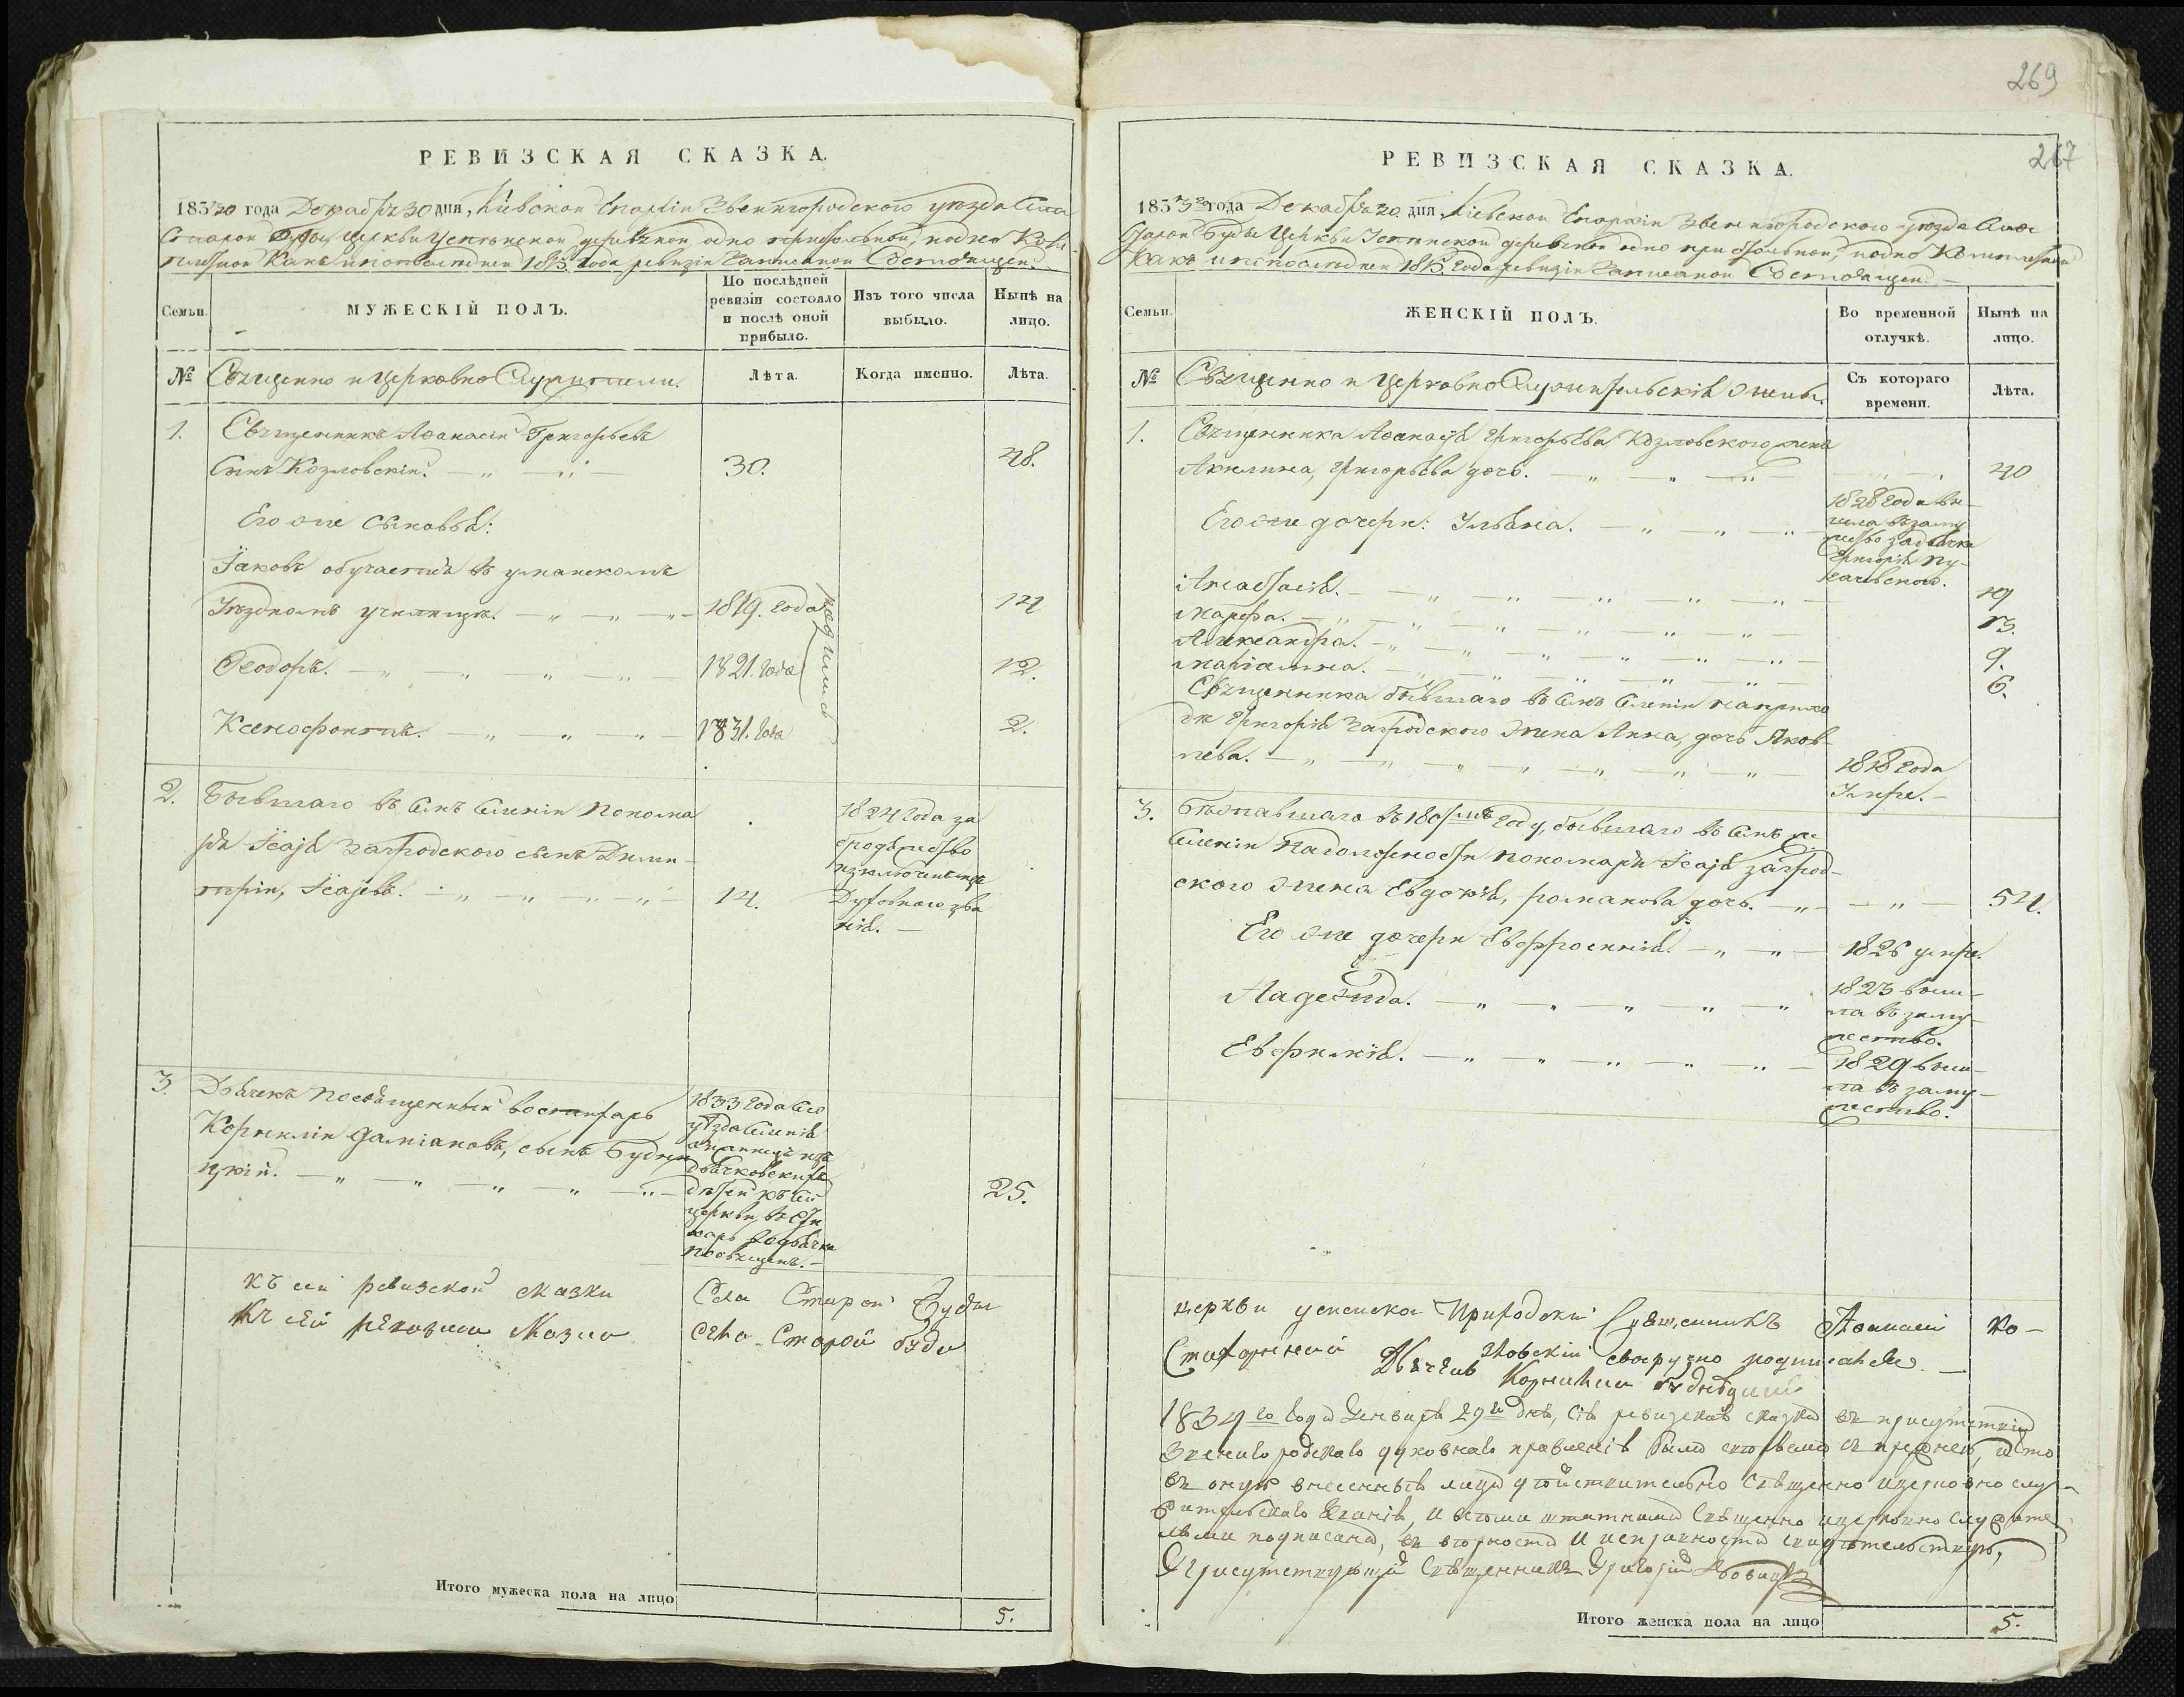 РЕВИЗСКАЯ СКАЗКА.
183 года Декабря 30 дня, Киевской Епархіи Звенигородского уезда Села
Старой Буды церкви Успенской деревянной одно
какъ и по последней 1815 года ревизіи написанной
Семьи.
МУЖЕСКІЙ ПОЛЪ.
По послѣдней ревизіи состояло и послѣ оной прибыло.
Изъ того числа выбыло.
Нынѣ на лицо.
№ Священно и Церковно Служители.
Лѣта.
Когда именно.
Лѣта.
1. Священникъ Афанасій Григорьевъ
Сынъ Козловскій. 30. 48.
Его же сыновья:
Іаковъ обучается въ уманскомъ
Уездномъ училище. 1819. года 14
родились
Феодоръ. 1821. года 12.
Ксенофонтъ. 1831. года 2.
2. Бывшаго въ семъ селеніи Понома
ря Ісаія Загродского сынъ Дими-
трій, Ісаіевъ. 14.
1824 года за
бродяжество
изключенъ изъ
Духовнаго зва
нія.
3. Дьячекъ посвященный во стихарь
Корнилій Даміановъ, сынъ Будни
цкій. 25.
1833 года
уезда селенія
изъ
дьячковскихъ
детей къ сей
церкви въ сти
харь дьячка
посвященъ.
къ сей ревизской сказки
къ сей ревизкой сказки
Села Старой Буды
села Старой буди
Итого мужеска пола на лицо
5.
269
267
РЕВИЗСКАЯ СКАЗКА.
1833 года Декабря 30 дня, Кіевской Епархіи Звенигородского уезда Села
Старой Буды Церкви Успенской деревянной одно приходской,
какъ и по последней 1815 года ревизіи написанной
Семьи.
ЖЕНСКІЙ ПОЛЪ.
Во временной отлучкѣ.
Нынѣ на лицо.
№ Священно и Церковно Служительскія жены.
Съ котораго времени.
Лѣта.
1. Священника Афанасія Григорьева Козловского жена
Акилина, Григорьева дочь. 40
Его же дочери: Ульяна.
1828 года вы-
шла въ заму
жество за дьячка
Григорія Пу-
качевского.
Анастасія. 19
Марфа. 13.
Александра. 9.
Маріамна. 6.
Священника бывшаго въ семъ селеніи на прихо
де Григорія Загродского жена Анна, дочь Яков-
лева. 1818 года
Умре.
3. Бежавшаго въ году, бывшаго въ семъ же
селеніи на должности пономаря Ісаія загрод-
ского жена Евдокія, романова дочь. 54.
Его же дочери Евфросинія. 1826 умре.
Надежда. 1823 выш-
ла въ заму-
жество.
Евфимія. 1829 выш-
ла въ заму-
жество.
церкви успенской Приходскій Священникъ Афанасій Ко-
зловскій своеручно подписался.
Стихарный Дьячекъ Корнилій Будницкій
1834го года Генваря 29го дня, сія ревизская сказка въ присутствіи
Звенигородскаго духовнаго правленія была сверена съ прежнею, и что
въ оную внесенныя лица действительно Священно и церковно слу-
жительскаго званія, и всеми штатными Священно и церковно служите
лями подписана, въ верности и исправности свидетельствую,
Присутствующій Священникъ Григорій
Итого женска пола на лицо
5.